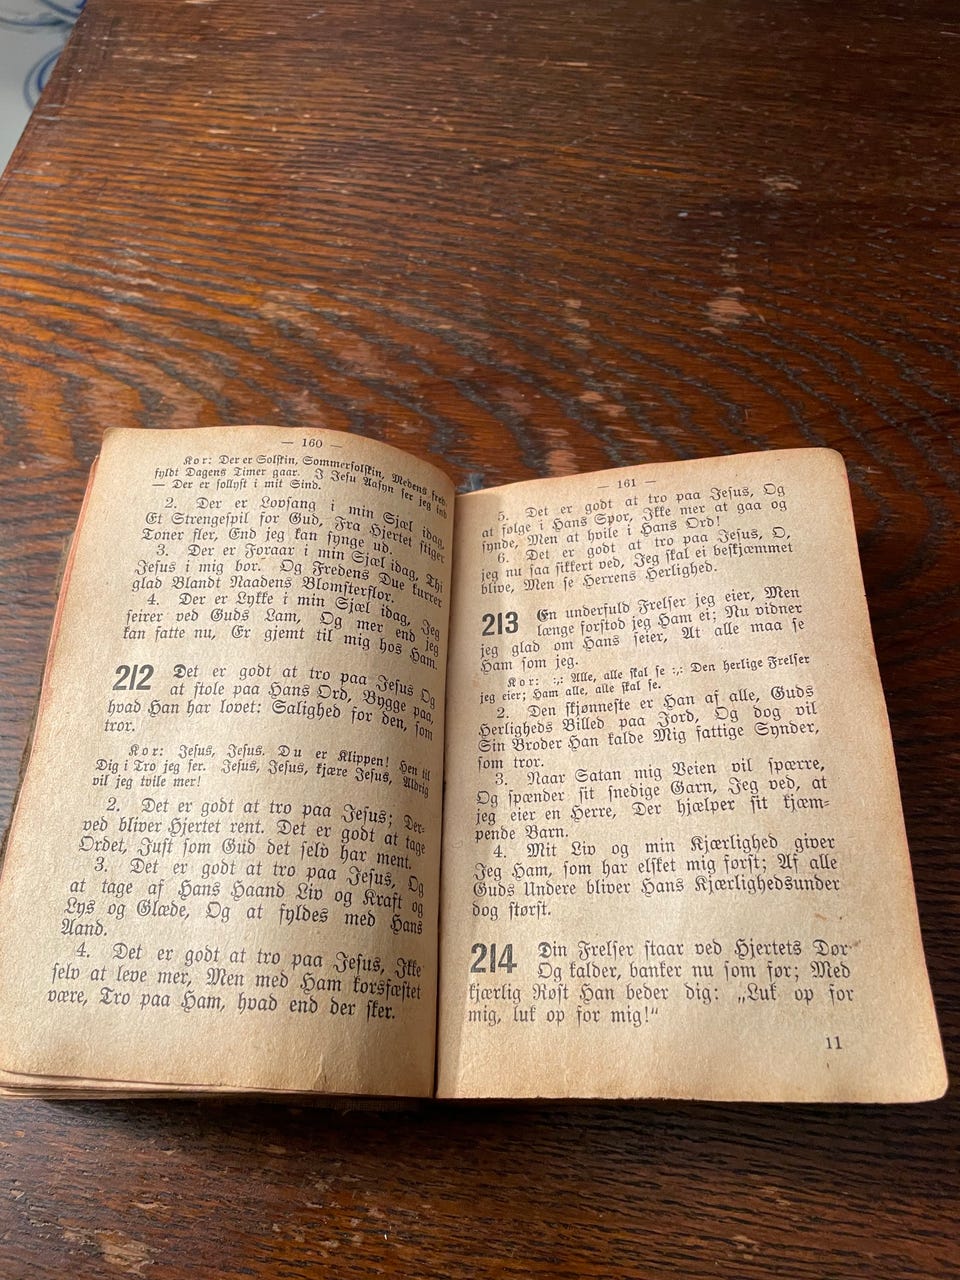 — 160 —
Kor: Der er Solskin, Sommersolskin, Medens fred-
fyldt Dagens Timer gaar. I Jesu Aasyn ser jeg ind
— Der er sollyst i mit Sind.
2. Der er Lovsang i min Sjæl idag,
Et Strengespil for Gud, Fra Hjertet stiger
Toner fler, End jeg kan synge ud.
3. Der er Foraar i min Sjæl idag, Thi
Jesus i mig bor. Og Fredens Due kurrer
glad Blandt Naadens Blomsterflor.
4. Der er Lykke i min Sjæl idag, Jeg
seirer ved Guds Lam, Og mer end jeg
kan fatte nu, Er gjemt til mig hos Ham.
212 Det er godt at tro paa Jesus Og
at stole paa Hans Ord, Bygge paa,
hvad Han har lovet: Salighed for den, som
tror.
Kor: Jesus, Jesus. Du er Klippen! Hen til
Dig i Tro jeg ser. Jesus, Jesus, kjære Jesus, Aldrig
vil jeg tvile mer!
2. Det er godt at tro paa Jesus; Der-
ved bliver Hjertet rent. Det er godt at tage
Ordet, Just som Gud det selv har ment.
3. Det er godt at tro paa Jesus, Og
at tage af Hans Haand Liv og Kraft og
Lys og Glæde, Og at fyldes med Hans
Aand.
4. Det er godt at tro paa Jesus, Ikke
selv at leve mer, Men med Ham korsfæstet
være, Tro paa Ham, hvad end der sker.
— 161 —
5. Det er godt at tro paa Jesus, Og
at følge i Hans Spor, Ikke mer at gaa og
synde, Men at hvile i Hans Ord!
6. Det er godt at tro paa Jesus, O,
jeg nu saa sikkert ved, Jeg skal ei beskjæmmet
blive, Men se Herrens Herlighed.
213 En underfuld Frelser jeg eier, Men
længe forstod jeg Ham ei; Nu vidner
jeg glad om Hans seier, At alle maa se
Ham som jeg.
Kor: :,: Alle, alle skal se :,: Den herlige Frelser
jeg eier; Ham alle, alle skal se.
2. Den skjønneste er Han af alle, Guds
Herligheds Billed paa Jord, Og dog vil
Sin Broder Han kalde Mig fattige Synder,
som tror.
3. Naar Satan mig Veien vil spærre,
Og spænder sit snedige Garn, Jeg ved, at
jeg eier en Herre, Der hjælper sit kjæm-
pende Barn.
4. Mit Liv og min Kjærlighed giver
Jeg Ham, som har elsket mig først; Af alle
Guds Undere bliver Hans Kjærlighedsunder
dog størst.
214 Din Frelser staar ved Hjertets Dør
Og kalder, banker nu som før; Med
kjærlig Røst Han beder dig: „Luk op for
mig, luk op for mig!"
11